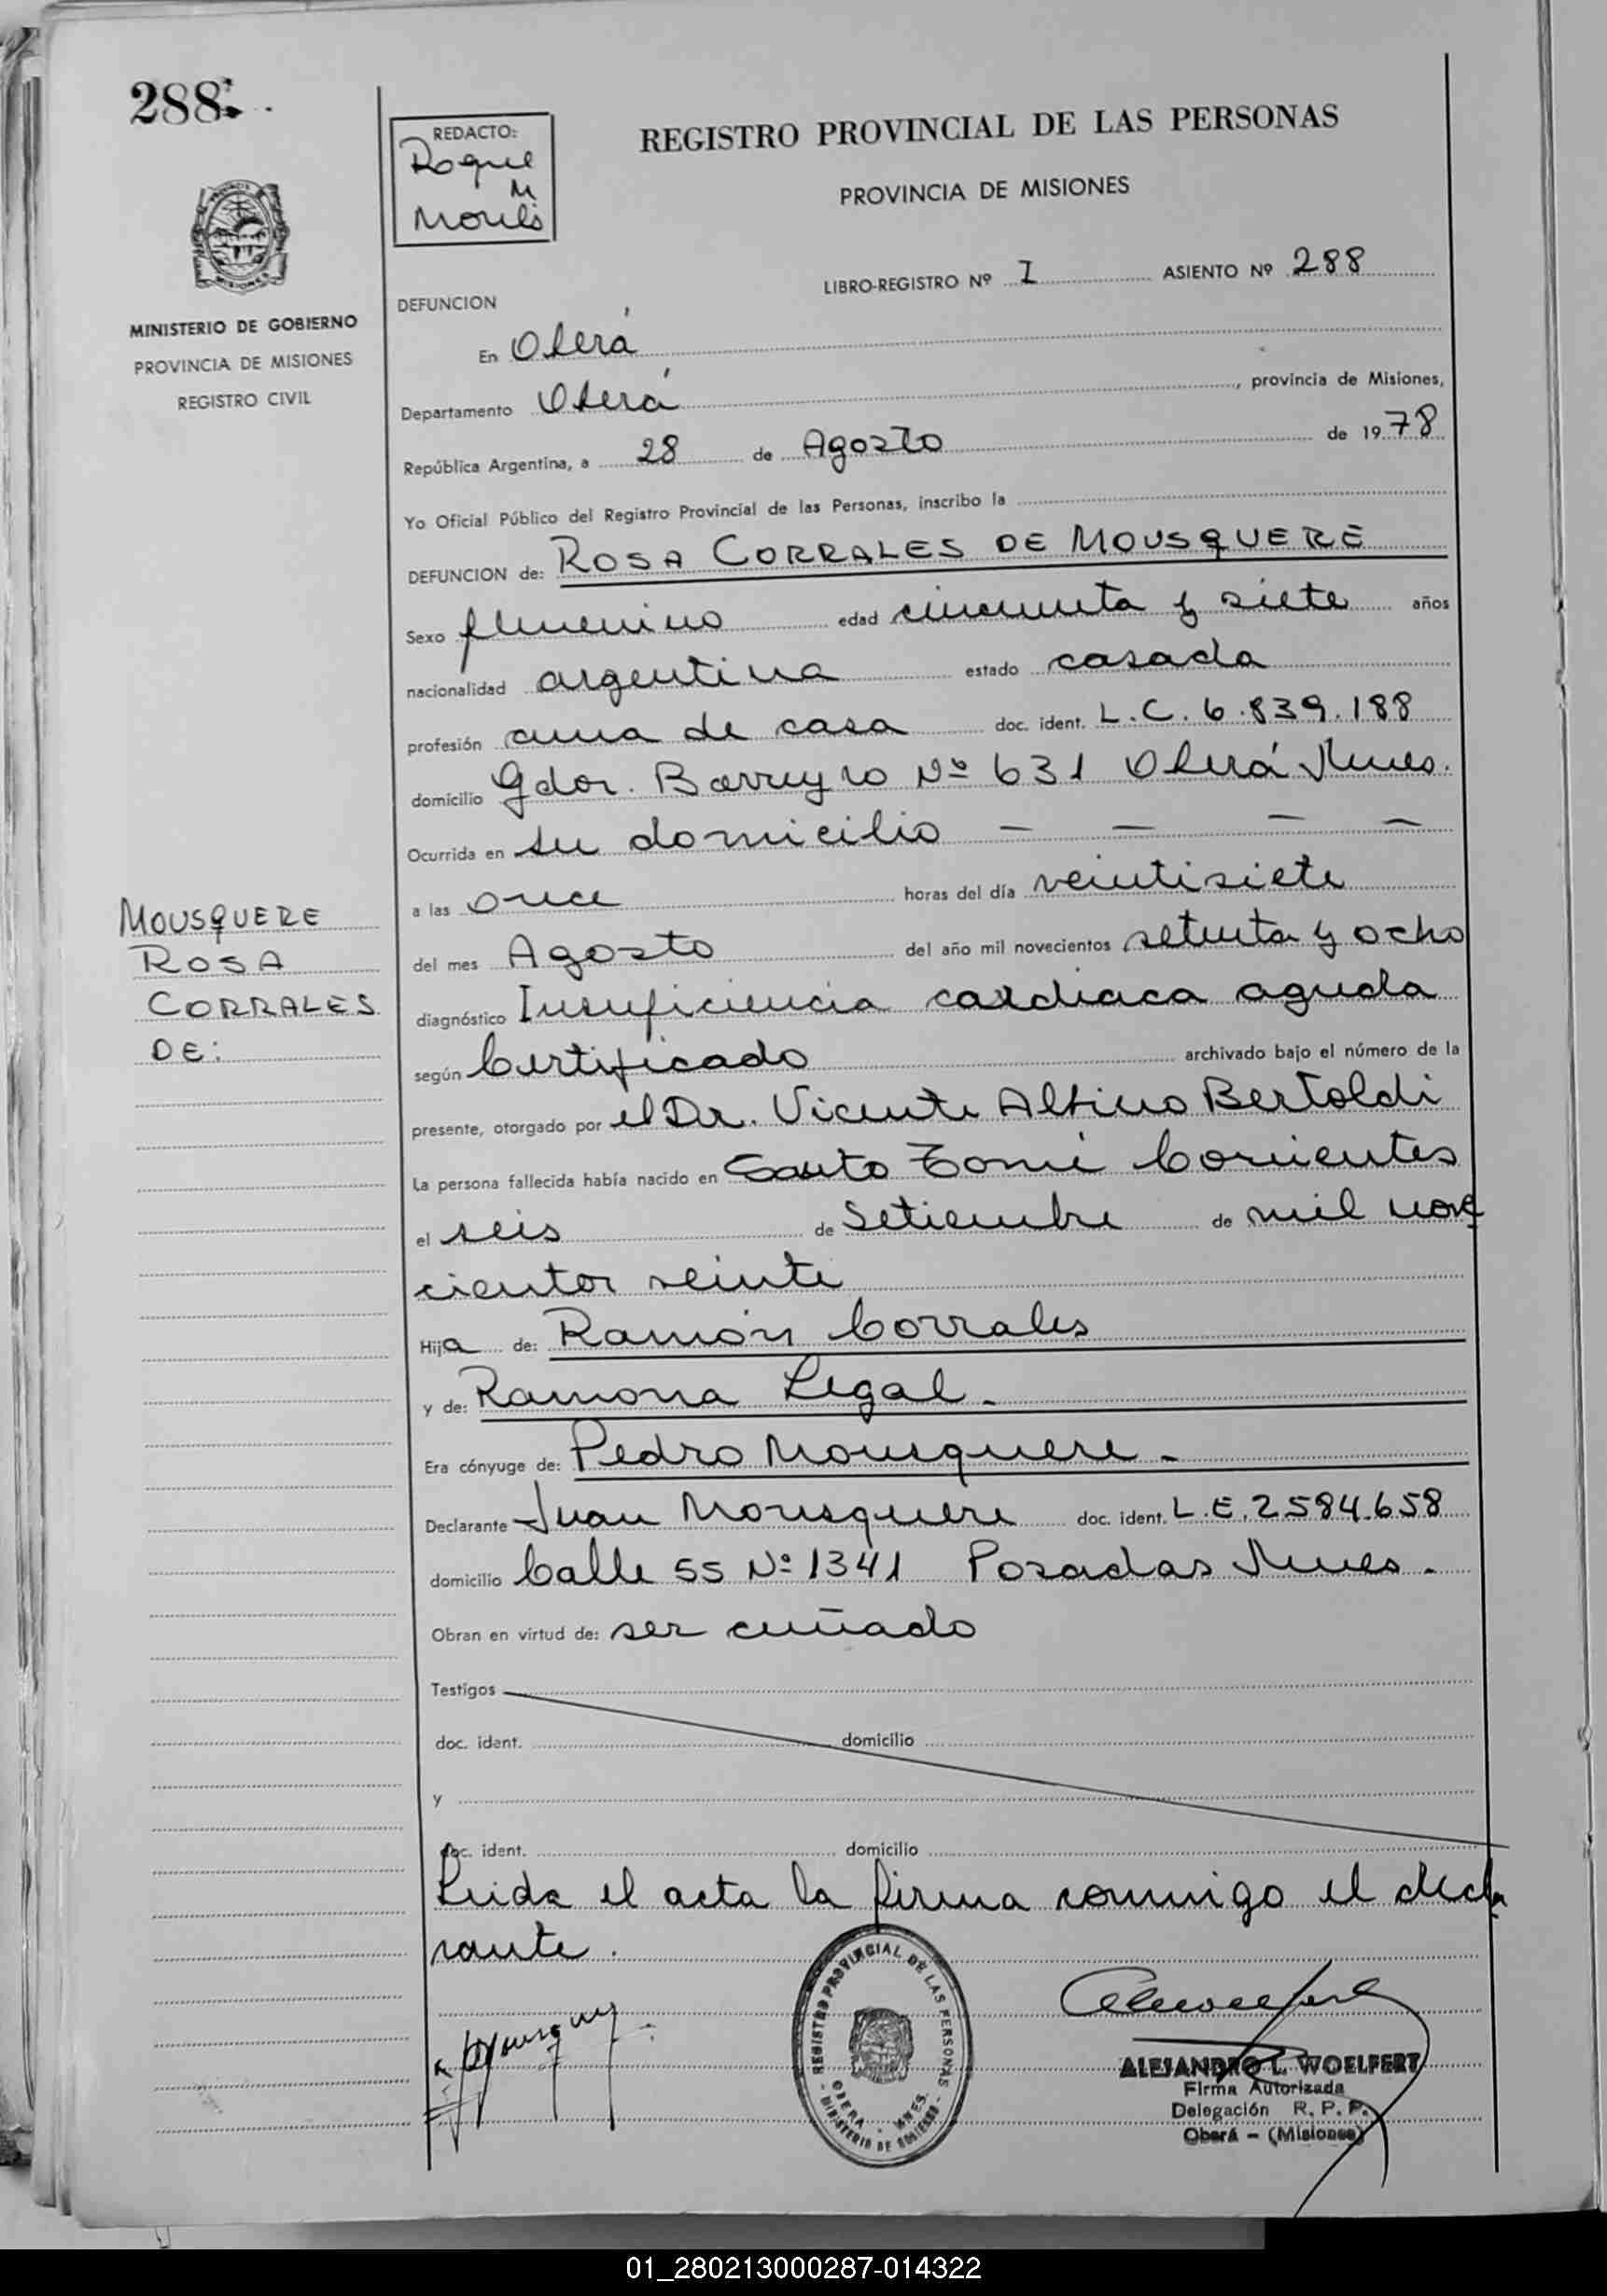 288
REDACTO:
Roque
M
REGISTRO PROVINCIAL DE LAS PERSONAS
PROVINCIA DE MISIONES
LIBRO-REGISTRO Nº I ASIENTO Nº 288
MINISTERIO DE GOBIERNO
PROVINCIA DE MISIONES
REGISTRO CIVIL
DEFUNCION
En Oberá
Departamento Oberá, provincia de Misiones,
República Argentina, a 28 de Agosto de 1978
Yo Oficial Público del Registro Provincial de las Personas, inscribo la
DEFUNCION de: ROSA CORRALES DE MOUSQUERE
Sexo femenino edad cincuenta y siete años
nacionalidad argentina estado casada
profesión ama de casa doc. ident. L.C. 6.839.188
domicilio Gdor. Barreyro Nº 631 Oberá Mnes.
Ocurrida en su domicilio — — — —
a las once horas del día veintisiete
del mes Agosto del año mil novecientos setenta y ocho
diagnóstico Insuficiencia cardiaca aguda
según Certificado archivado bajo el número de la
presente, otorgado por el Dr. Vicente Albino Bertoldi
La persona fallecida había nacido en Santo Tomé Corrientes
el seis de Setiembre de mil nove
cientos veinte
Hija de: Ramón Corrales
y de: Ramona Legal.-
Era cónyuge de: Pedro Mousquere.-
Declarante Juan Mousquere doc. ident. L.E. 2584.658
domicilio Calle 55 Nº 1341 Posadas Mnes.
Obran en virtud de: ser cuñado
Testigos
doc. ident. domicilio
y
doc. ident. domicilio
Leida el acta la firma conmigo el decla
rante.
MOUSQUERE
ROSA
CORRALES
DE:
REGISTRO PROVINCIAL DE LAS PERSONAS
OBERA - MNES.
- MINISTERIO DE GOBIERNO -
ALEJANDRO L. WOELFERT
Firma Autorizada
Delegación R. P. P.
Oberá - (Misiones)
01_280213000287-014322